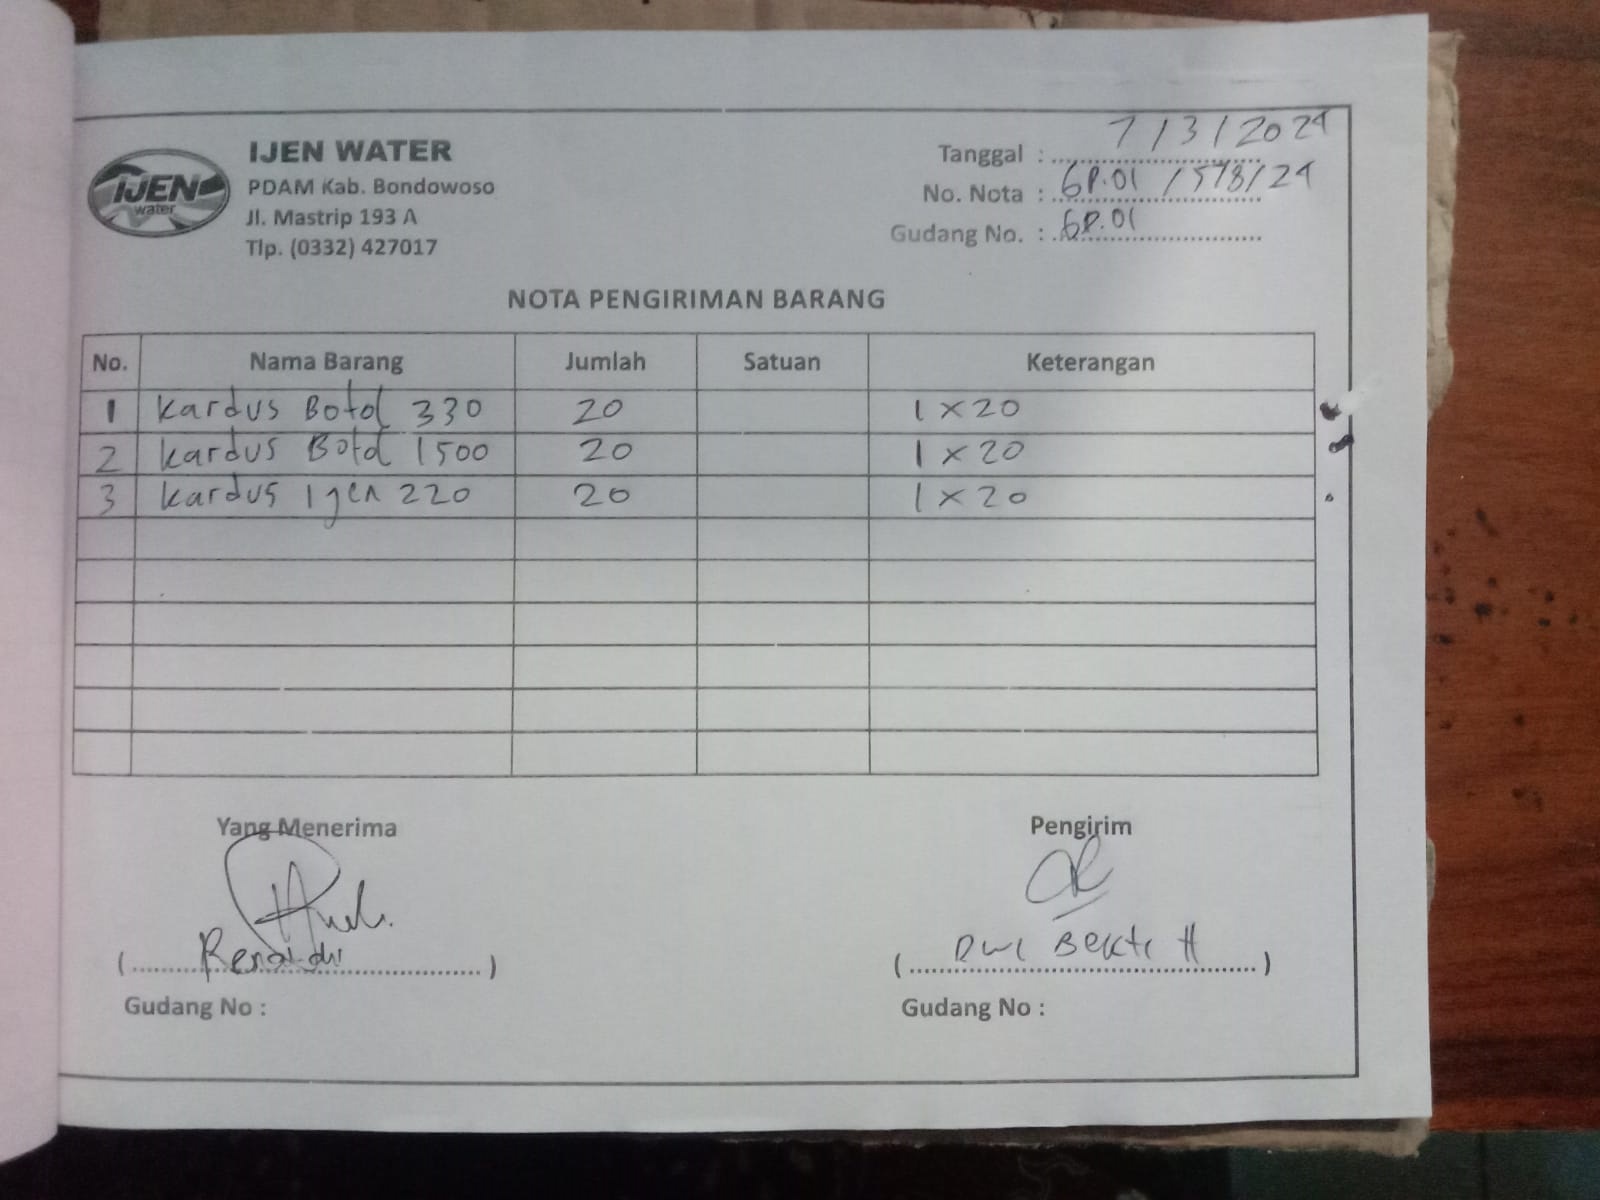 IJEN WATER
PDAM Kab. Bondowoso
Jl. Mastrip 193 A
Tlp. (0332) 427017
IJEN
water
Tanggal : 7/3/2024
No. Nota : GP.01 /578/24
Gudang No. : GP.01
NOTA PENGIRIMAN BARANG
No. Nama Barang Jumlah Satuan Keterangan
1 Kardus Botol 330 20 1 x 20
2 Kardus Botol 1500 20 1 x 20
3 Kardus Ijen 220 20 1 x 20
Yang Menerima Pengirim
( ) ( Dwi Bekti H )
Gudang No : Gudang No :